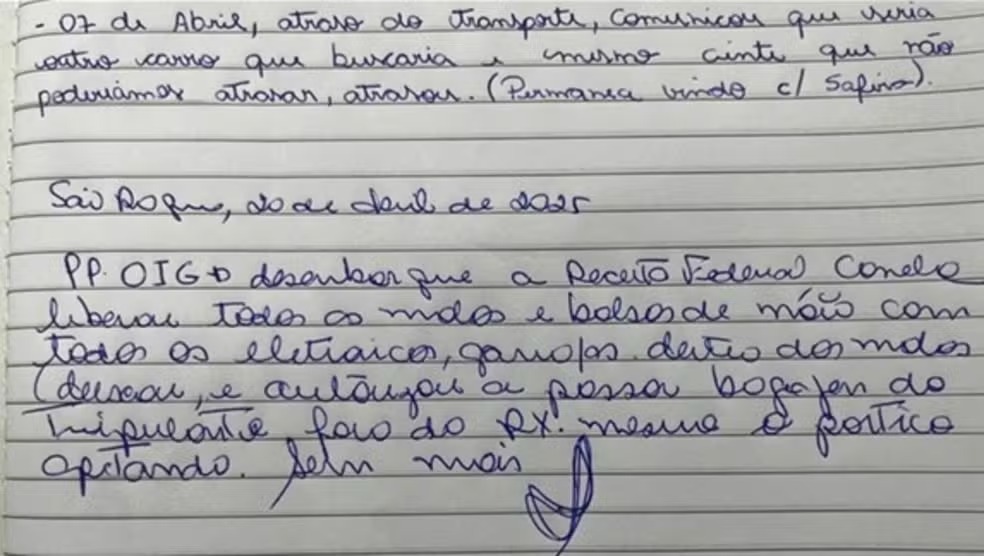 - 07 de Abril, atraso do transporte, comunicou que viria
outro carro que buscaria e mesmo ciente que não
poderíamos atrasar, atrasou. (Permanea vindo c/ Safira).
São Roque, 20 de Abril de 2025
PP. OIG desembarque a Receita Federal
liberou todos as malas e bolsas de mão com
todos os eletraicos, garrafas dentro das malas
(deixou, e autorizou a passar bagajen do
tripulante fora do RX. mesmo o portico
apitando. Sem mais